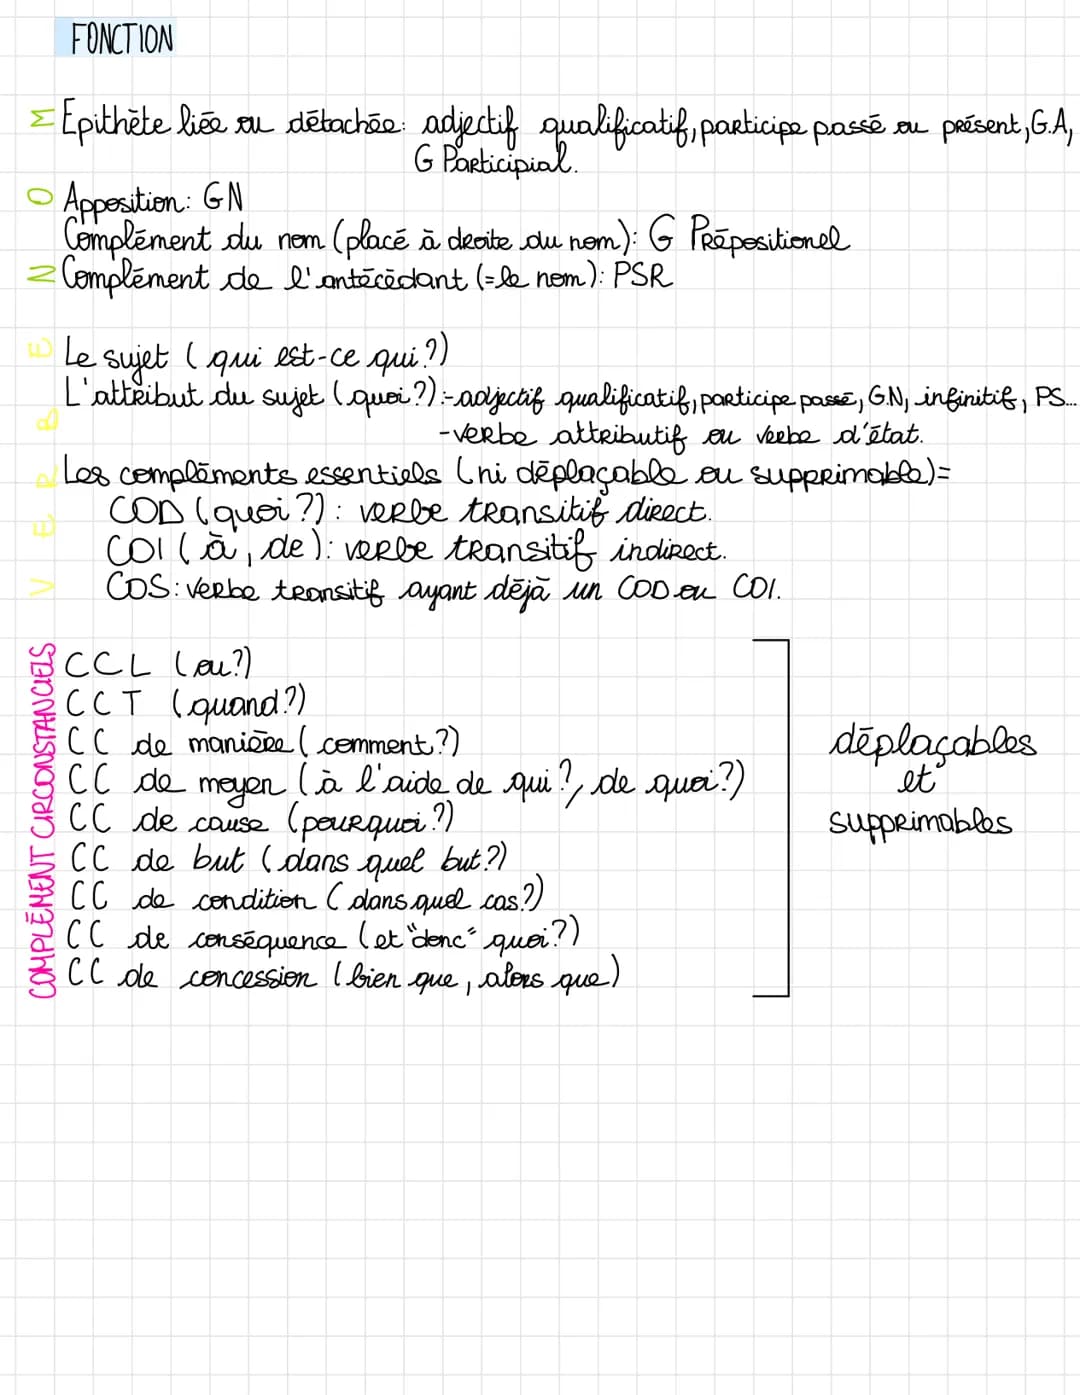 FONCTION
Epithète liée ou détachée: adjectif qualificatif, participe passé ou présent, G.A,
G Participial.
Apposition: GN
Complément du nom (placé à droite du nom): G Prépositionel
Complément de l'antécédant (=le nom): PSR
NOM
Le sujet (qui est-ce qui?)
L'attribut du sujet (quoi?):-adjectif qualificatif, participe passé, G.N, infinitif, PS...
-verbe attributif ou verbe d'état.
Les compléments essentiels (ni déplaçable ou supprimable)=
COD (quoi?): verbe transitif direct.
COI (à, de): verbe transitif indirect.
COS: verbe transitif ayant déjà un COD ou COI.
VERBE
COMPLÉMENT CIRCONSTANCIELS
CCL (ou?)
CCT (quand?)
CC de manière (comment?)
CC de moyen (à l'aide de qui?, de quoi?)
CC de cause (pourquoi?)
CC de but (dans quel but?)
CC de condition (dans quel cas?)
CC de conséquence (et "donc" quoi?)
CC de concession (bien que, alors que)
déplaçables
et
supprimables